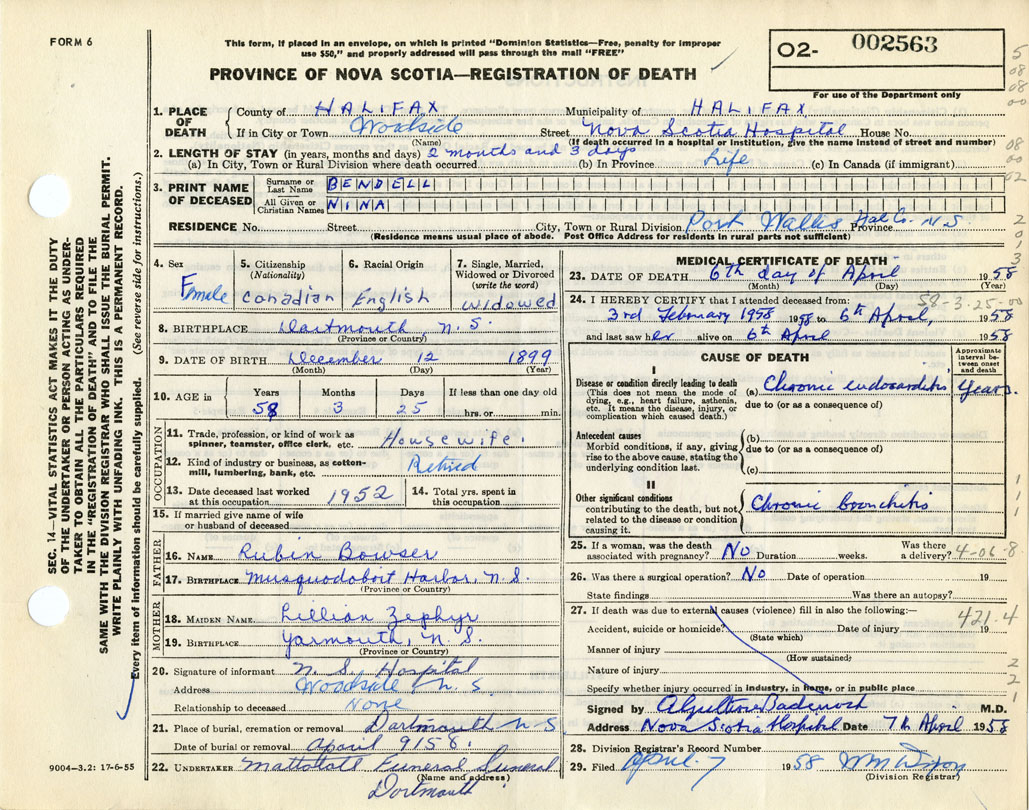 FORM 6
This form, if placed in an envelope, on which is printed "Dominion Statistics—Free, penalty for improper
use $50," and properly addressed will pass through the mail "FREE"
PROVINCE OF NOVA SCOTIA—REGISTRATION OF DEATH
O2- 002563
For use of the Department only
1. PLACE OF DEATH County of HALIFAX Municipality of HALIFAX
If in City or Town Woodside Street Nova Scotia Hospital House No.
(Name) (If death occurred in a hospital or institution, give the name instead of street and number)
2. LENGTH OF STAY (in years, months and days) 2 months and 3 days
(a) In City, Town or Rural Division where death occurred (b) In Province Life (c) In Canada (if immigrant)
3. PRINT NAME OF DECEASED Surname or Last Name BENDELL
All Given or Christian Names NINA
RESIDENCE No. Street City, Town or Rural Division Port Wallis Hal Co. Province N.S.
(Residence means usual place of abode. Post Office Address for residents in rural parts not sufficient)
4. Sex Female
5. Citizenship (Nationality) Canadian
6. Racial Origin English
7. Single, Married, Widowed or Divorced (write the word) widowed
8. BIRTHPLACE Dartmouth, N.S.
(Province or Country)
9. DATE OF BIRTH December 12 1899
(Month) (Day) (Year)
10. AGE in Years 58 Months 3 Days 25 If less than one day old hrs. or min.
OCCUPATION
11. Trade, profession, or kind of work as spinner, teamster, office clerk, etc. Housewife.
12. Kind of industry or business, as cotton-mill, lumbering, bank, etc. Retired
13. Date deceased last worked at this occupation 1952 14. Total yrs. spent in this occupation
15. If married give name of wife or husband of deceased
FATHER
16. NAME Rubin Bowser
17. BIRTHPLACE Musquodoboit Harbor, N.S.
(Province or Country)
MOTHER
18. MAIDEN NAME Lillian Zephyr
19. BIRTHPLACE Yarmouth, N.S.
(Province or Country)
20. Signature of informant N.S. Hospital
Address Woodside N.S.
Relationship to deceased None
21. Place of burial, cremation or removal Dartmouth N.S
Date of burial or removal April 9 1958.
22. UNDERTAKER Funeral
(Name and address)
Dartmouth
9004—3.2: 17-6-55
MEDICAL CERTIFICATE OF DEATH
23. DATE OF DEATH 6th day of April 1958
(Month) (Day) (Year)
58-3-25-00
24. I HEREBY CERTIFY that I attended deceased from:
3rd February 1958 1958 to 6th April, 1958
and last saw her alive on 6th April 1958
CAUSE OF DEATH
Approximate interval between onset and death
I
Disease or condition directly leading to death (a) Chronic endocarditis Years.
(This does not mean the mode of dying, e.g., heart failure, asthenia, etc. It means the disease, injury, or complication which caused death.)
due to (or as a consequence of)
Antecedent causes
Morbid conditions, if any, giving rise to the above cause, stating the underlying condition last.
(b)
due to (or as a consequence of)
(c)
II
Other significant conditions
contributing to the death, but not related to the disease or condition causing it.
Chronic bronchitis
25. If a woman, was the death associated with pregnancy? No Duration weeks. Was there a delivery?
4-06-8
26. Was there a surgical operation? No Date of operation 19
State findings Was there an autopsy?
27. If death was due to external causes (violence) fill in also the following:—
421.4
Accident, suicide or homicide? Date of injury 19
(State which)
Manner of injury
(How sustained)
Nature of injury
Specify whether injury occurred in industry, in home, or in public place
Signed by M.D.
Address Nova Scotia Hospital Date 7th April 1958
28. Division Registrar's Record Number
29. Filed April 7 1958
(Division Registrar)
SEC. 14—VITAL STATISTICS ACT MAKES IT THE DUTY
OF THE UNDERTAKER OR PERSON ACTING AS UNDER-
TAKER TO OBTAIN ALL THE PARTICULARS REQUIRED
IN THE "REGISTRATION OF DEATH" AND TO FILE THE
SAME WITH THE DIVISION REGISTRAR WHO SHALL ISSUE THE BURIAL PERMIT.
WRITE PLAINLY WITH UNFADING INK. THIS IS A PERMANENT RECORD.
Every item of information should be carefully supplied. (See reverse side for instructions.)